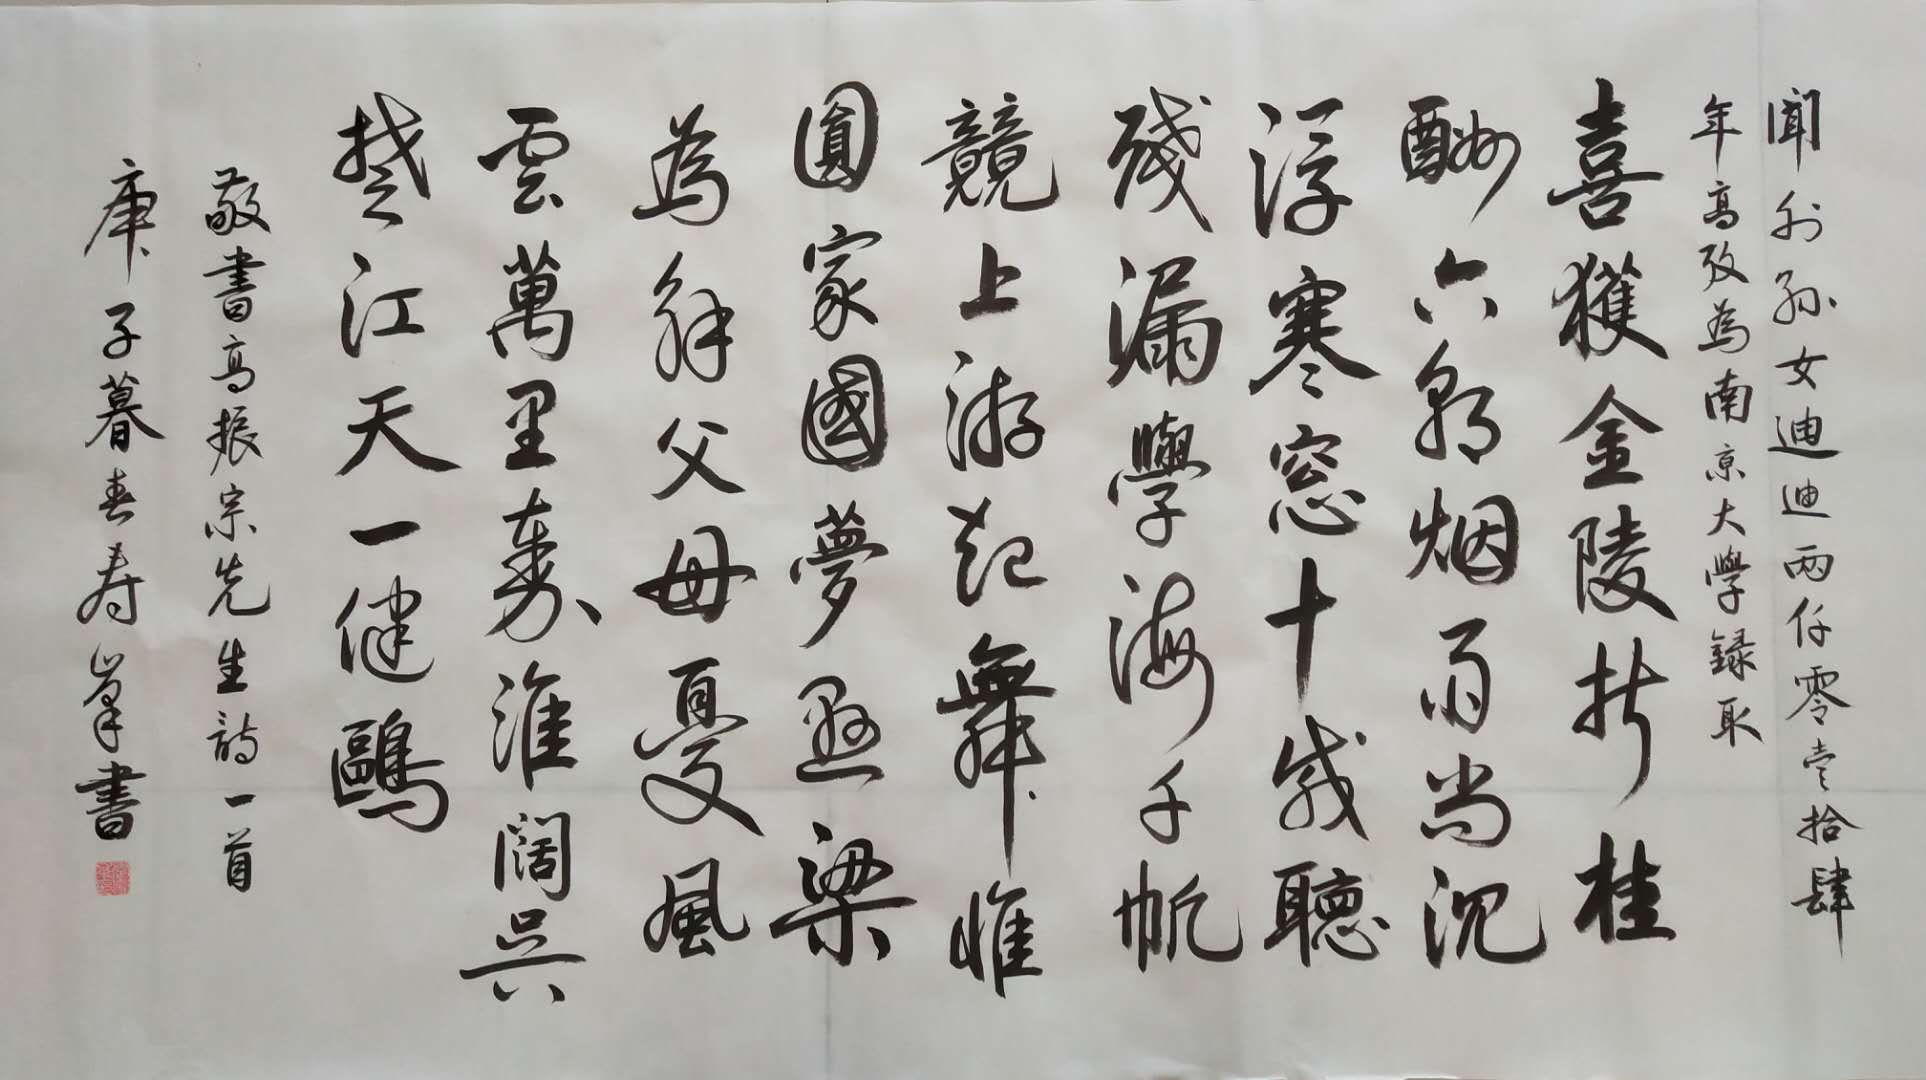 聞外孫女迪迪兩仟零壹拾肆
年高攷為南京大學録取
喜獲金陵折桂
酬六朝烟雨尚沉
浮寒窓十載聽
殘漏學海千帆
競上游起舞惟
圓家國夢懸梁
為解父母憂風
雲萬里秦淮闊吳
楚江天一健鷗
敬書高振宗先生詩一首
庚子暮春寿峯書